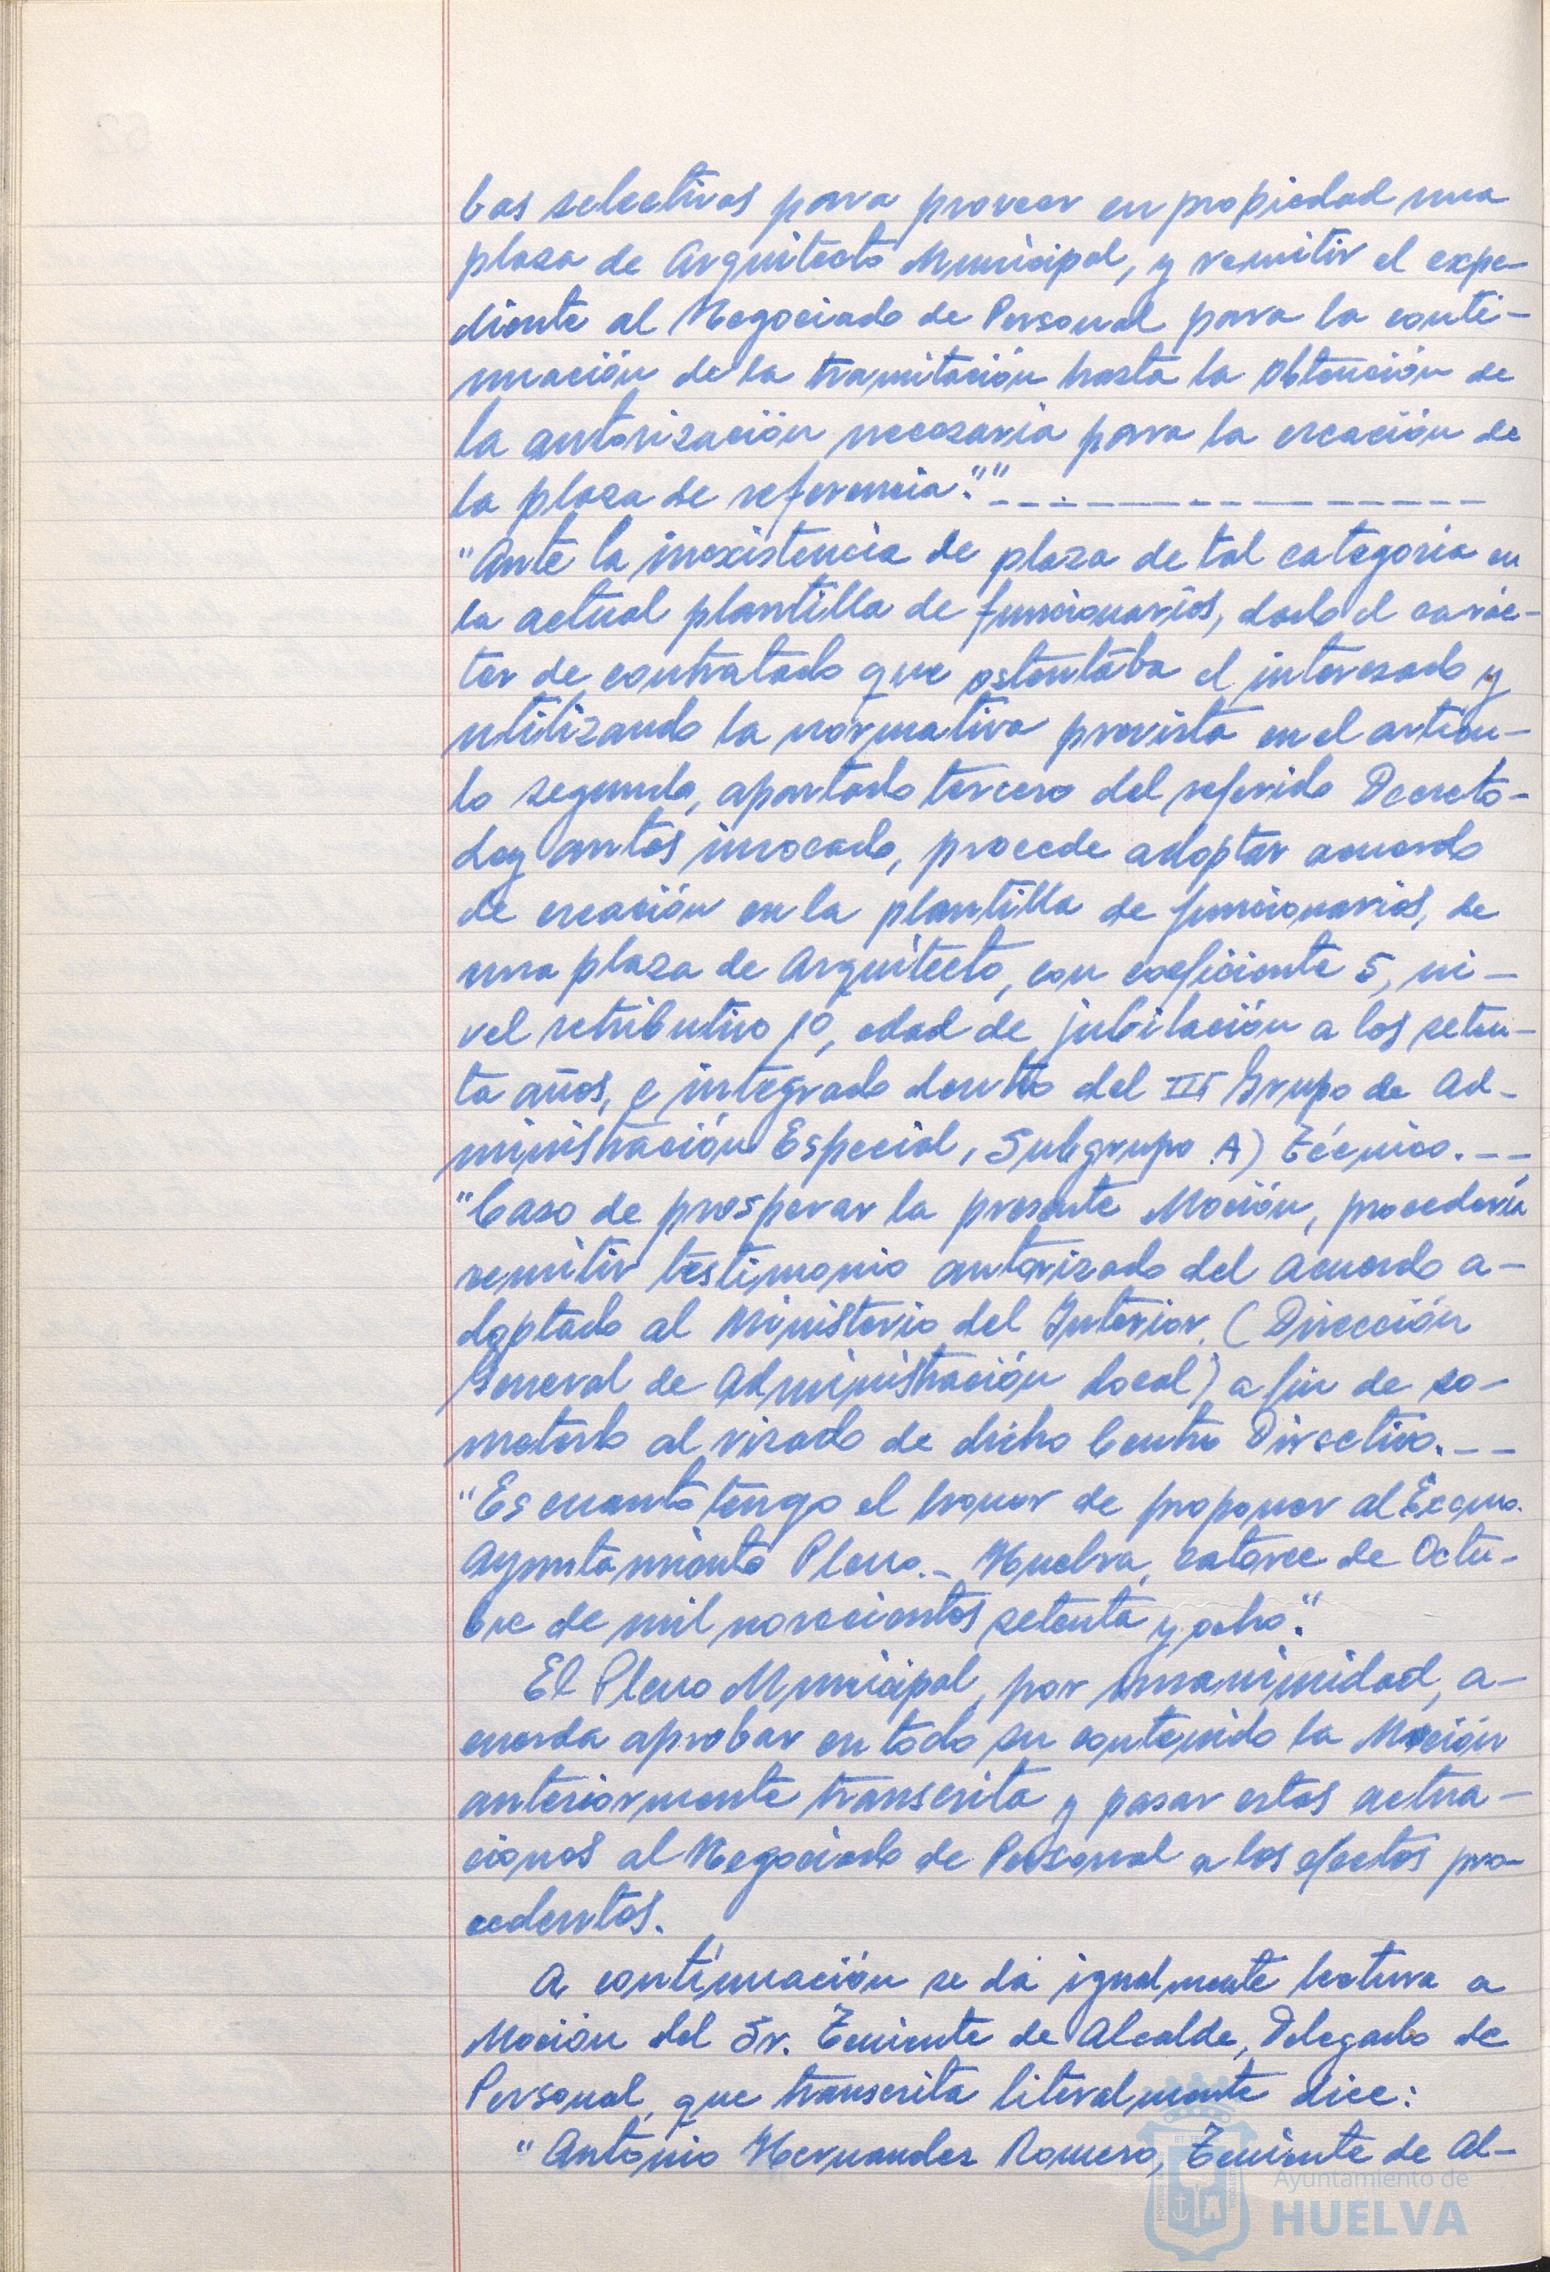 bas selectivas para proveer en propiedad una
plaza de Arquitecto Municipal, y remitir el expe-
diente al Negociado de Personal para la conti-
nuación de la tramitación hasta la obtención de
la autorización necesaria para la creación de
la plaza de referencia."" - - - - - - - - - - - - -
"Ante la inexistencia de plaza de tal categoria en
la actual plantilla de funcionarios, dado el carác-
ter de contratado que ostentaba el interesado y
utilizando la normativa prevista en el articu-
lo segundo, apartado tercero del referido Decreto-
Ley antes invocado, procede adoptar acuerdo
de creación en la plantilla de funcionarios, de
una plaza de Arquitecto, con coeficiente 5, ni-
vel retributivo 10, edad de jubilación a los seten-
ta años, e integrado dentro del III Grupo de Ad-
ministración Especial, Subgrupo A) Técnico. - -
"Caso de prosperar la presente Moción, procedería
remitir testimonio autorizado del acuerdo a-
doptado al Ministerio del Interior, (Dirección
General de Administración Local) a fin de so-
meterlo al visado de dicho Centro Directivo. - -
"Es cuanto tengo el honor de proponer al Excmo.
Ayuntamiento Pleno. - Huelva, catorce de Octu-
bre de mil novecientos setenta y ocho".
El Pleno Municipal, por unanimidad, a-
cuerda aprobar en todo su contenido la Moción
anteriormente transcrita y pasar estas actua-
ciones al Negociado de Personal a los efectos pro-
cedentes.
A continuación se dá igualmente lectura a
Moción del Sr. Teniente de Alcalde, Delegado de
Personal, que transcrita literalmente dice:
"Antonio Hernandez Romero, Teniente de Al-
Ayuntamiento de
HUELVA